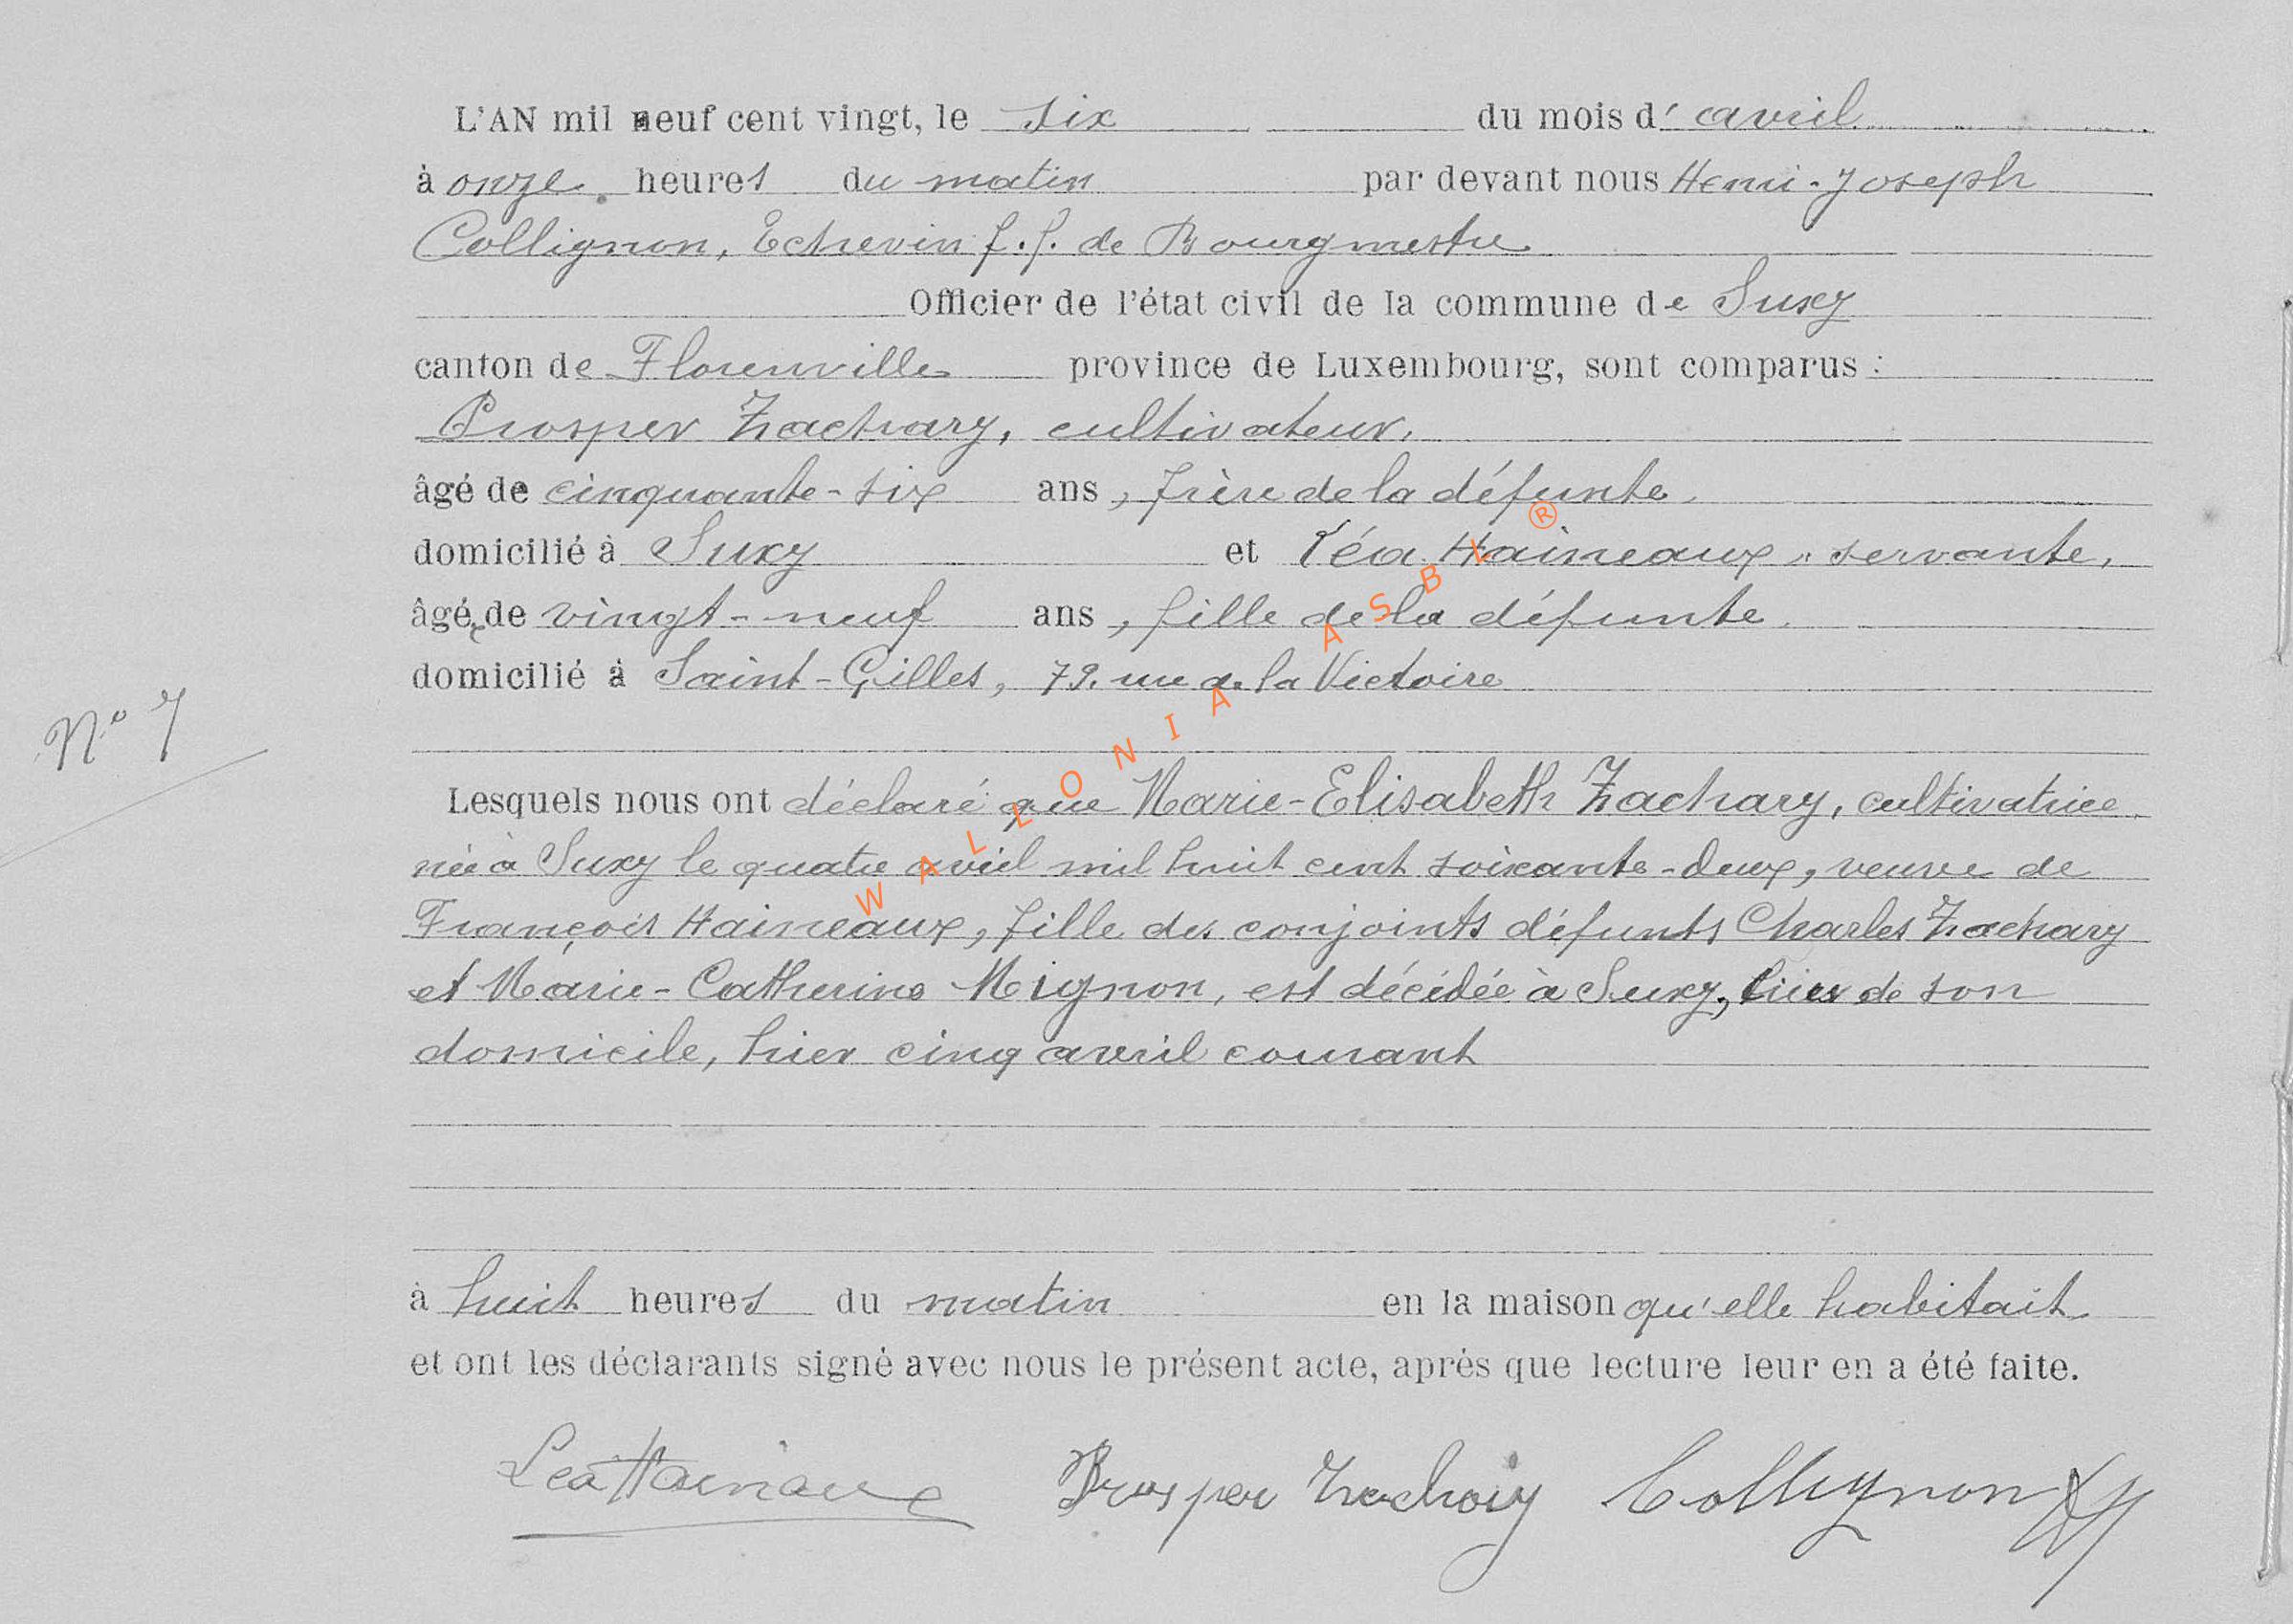 L'AN mil neuf cent vingt, le six du mois d' avril
à onze heures du matin par devant nous Henri-Joseph
Collignon, Echevin f.f. de Bourgmestre
Officier de l'état civil de la commune de Suxy
canton de Florenville province de Luxembourg, sont comparus :
Prosper Zachary, cultivateur,
âgé de cinquante-six ans, frère de la défunte,
domicilié à Suxy et Léa Haineaux, servante,
âgée de vingt-neuf ans, fille de la défunte,
domicilié à Saint-Gilles, 79, rue de la Victoire
N° 7
Lesquels nous ont déclaré que Marie-Elisabeth Zachary, cultivatrice,
née à Suxy le quatre avril mil huit cent soixante-deux, veuve de
François Haineaux, fille des conjoints défunts Charles Zachary
et Marie-Catherine Mignon, est décédée à Suxy, lieu de son
domicile, hier cinq avril courant
à huit heures du matin en la maison qu'elle habitait
et ont les déclarants signé avec nous le présent acte, après que lecture leur en a été faite.
Léa Hainaux Prosper Zachary Collignon
WALLONIA ASBL ®